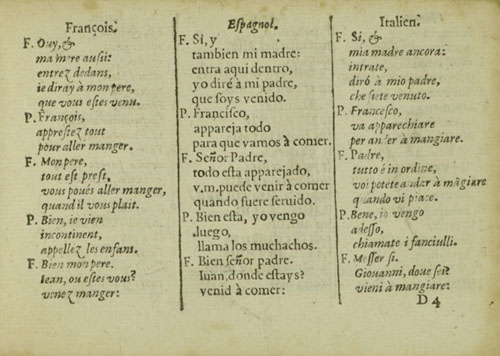 François.
F. Ouy, &
ma mere aussi:
entrez dedans,
ie diray à mon pere,
que vous estes venu.
P. François,
apprestez tout
pour aller manger.
F. Mon pere,
tout est prest,
vous poués aller manger,
quand il vous plait.
P. Bien, ie vien
incontinent,
appellez les enfans.
F. Bien mon pere.
Iean, ou estes vous?
venez manger:
Espagnol.
F. Si, y
tambien mi madre:
entra aqui dentro,
yo diré à mi padre,
que soys venido.
P. Francisco,
appareja todo
para que vamos à comer.
F. Señor Padre,
todo esta apparejado,
v.m. puede venir à comer
quando fuere seruido.
P. Bien esta, yo vengo
luego,
llama los muchachos.
F. Bien señor padre.
Iuan, donde estays?
venid à comer:
Italien.
F. Si, &
mia madre ancora:
intrate,
dirò à mio padre,
che siete venuto.
P. Francesco,
va apparechiare
per andar à mangiare.
F. Padre,
tutto è in ordine,
voi potete andar à mãgiare
quando vi piace.
P. Bene, io vengo
adesso,
chiamate i fanciulli.
F. Messer si.
Giouanni, doue sei?
vieni à mangiare:
D 4